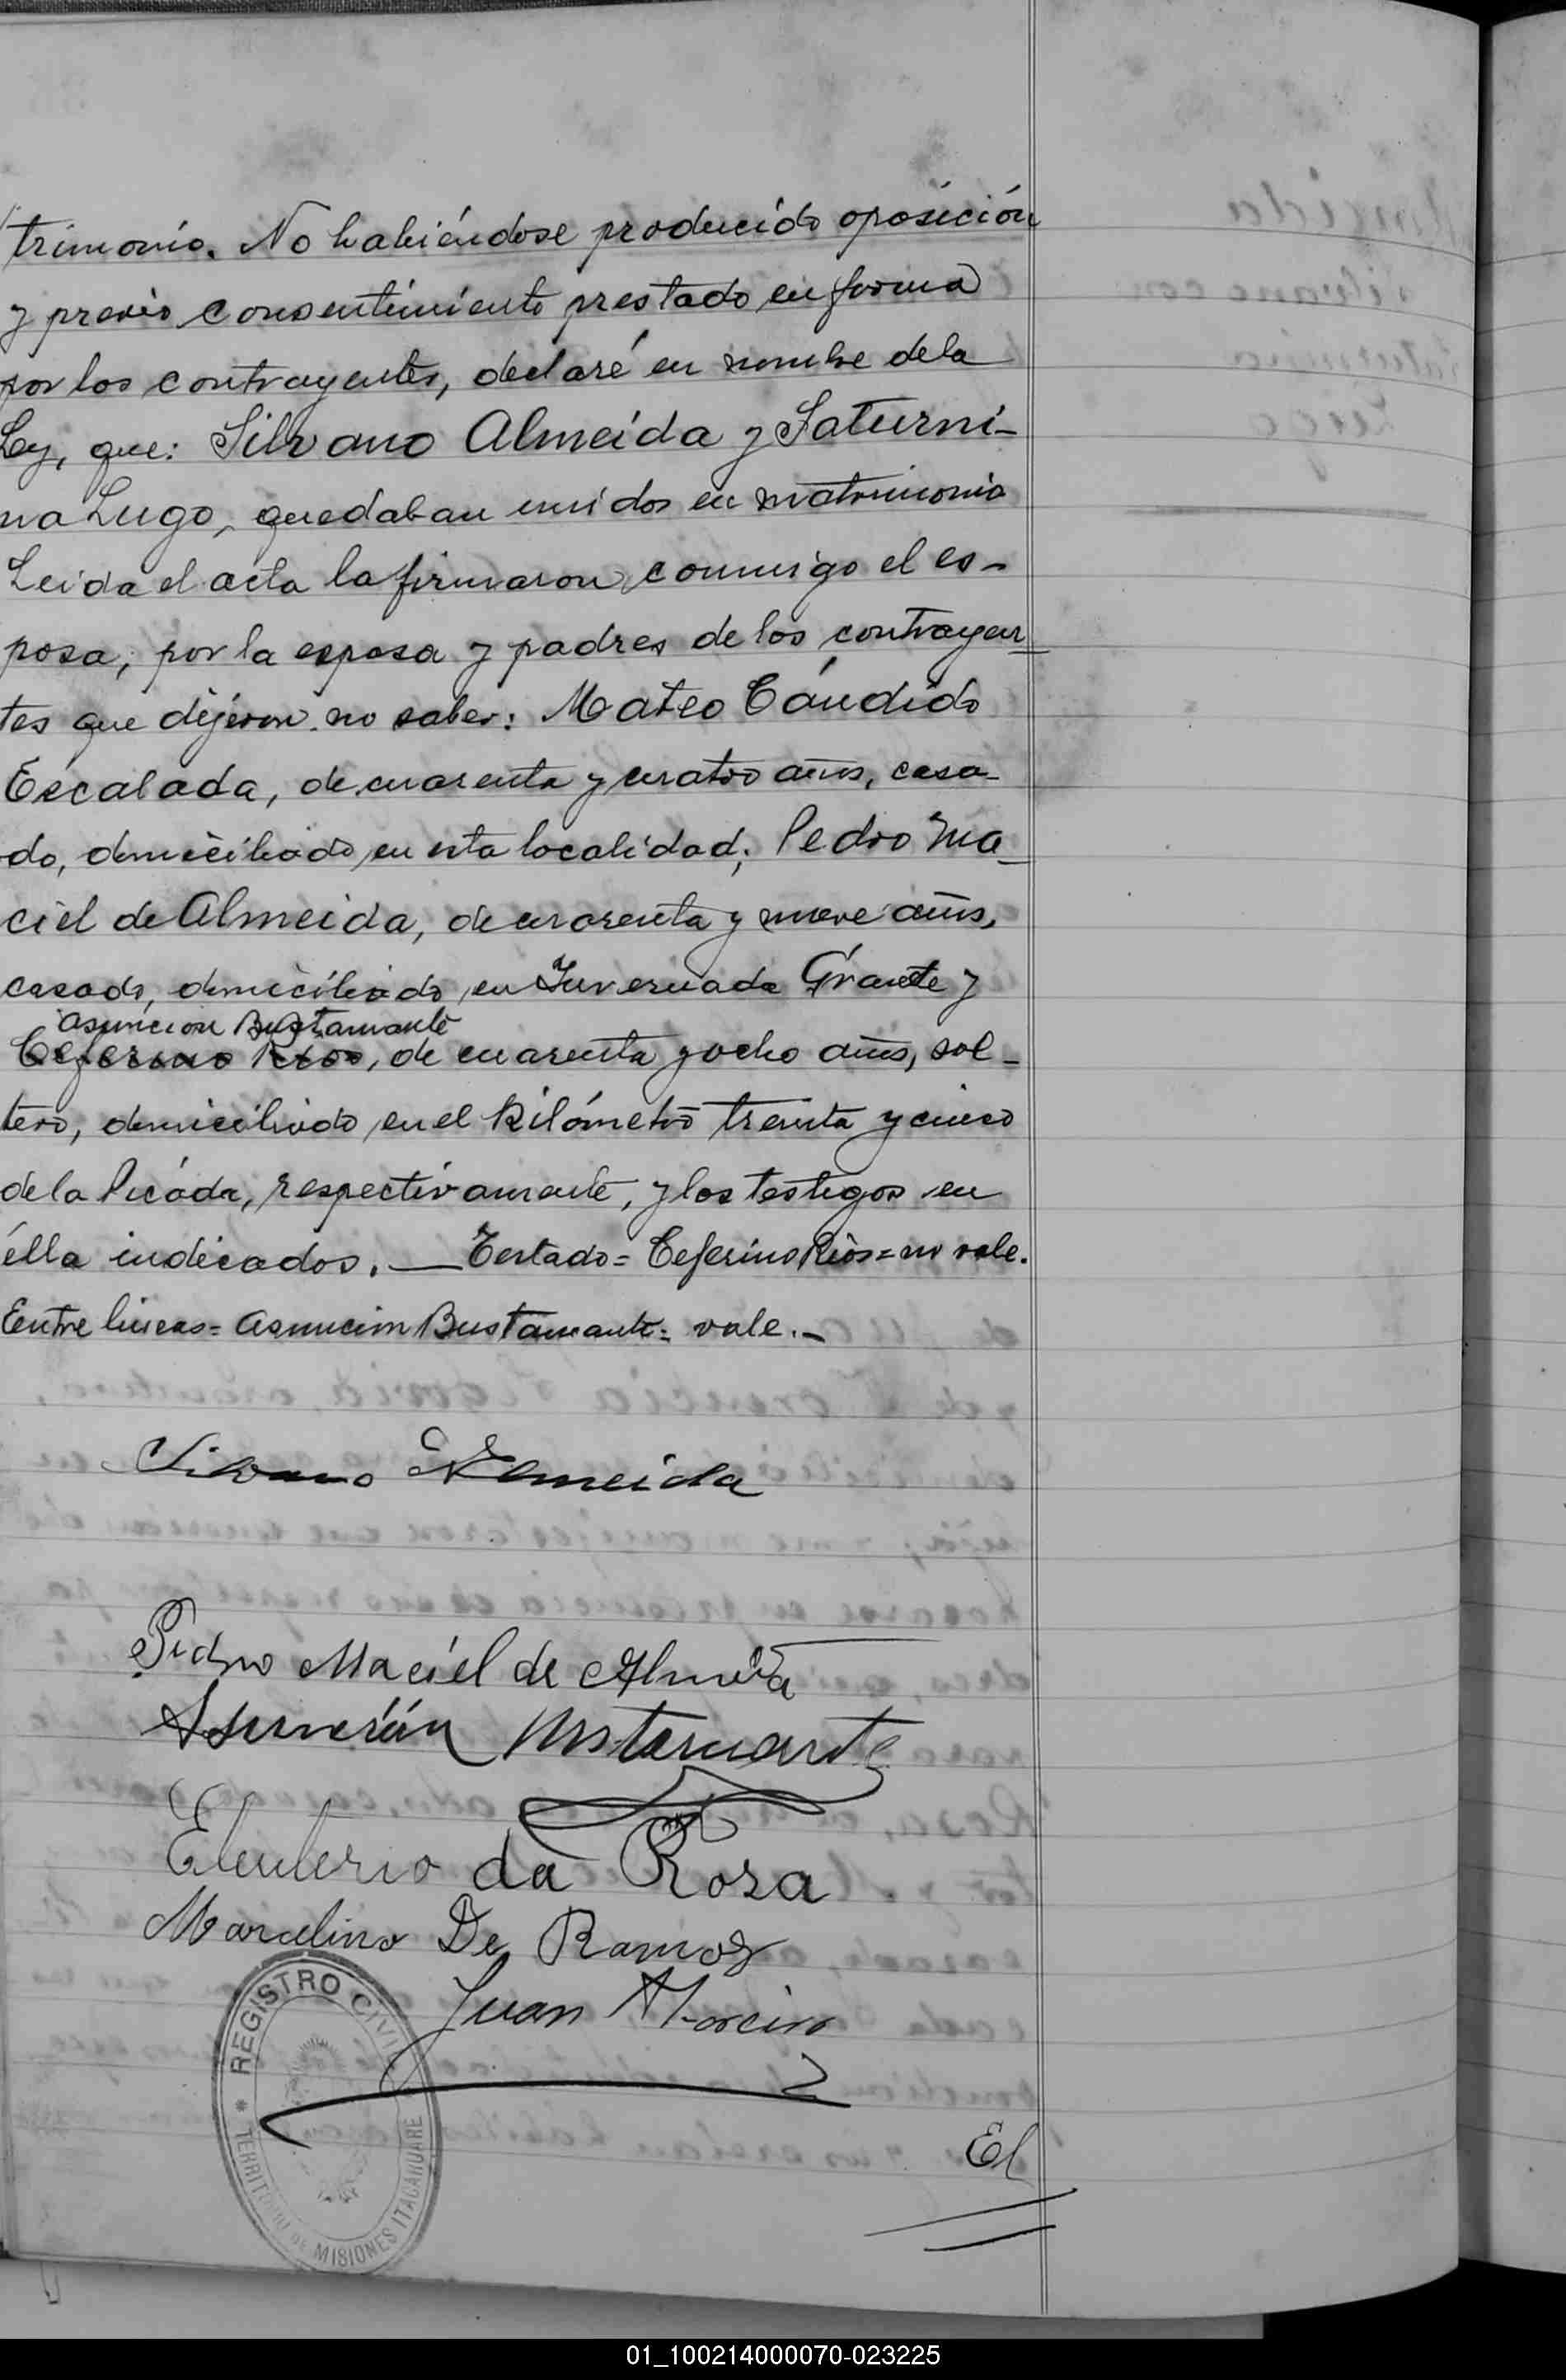 trimonio. No habiéndose producido oposición
y previo consentimiento prestado en forma
por los contrayentes, declaré en nombre de la
Ley, que: Silvano Almeida y Saturni-
na Lugo, quedaban unidos en matrimonio
Leida el acta la firmaron conmigo el es-
poso, por la esposa y padres de los contrayen-
tes que dijeron no saber: Mateo Cándido
Escalada, de cuarenta y cuatro años, casa-
do, domiciliado en esta localidad; Pedro Ma-
ciel de Almeida, de cuarenta y nueve años,
casado, domiciliado en Invernada Grande y
Asunción Bustamante
Ceferino Rios, de cuarenta y ocho años, sol-
tero, domiciliado en el Kilómetro treinta y cinco
de la Picada, respectivamente, y los testigos en
élla indicados. — Testado = Ceferino Rios = no vale.
Entre lineas = Asunción Bustamante = vale. -
Silvano Almeida
Pedro Maciel de Almeida
Asunción Bustamante
Eleuterio da Rosa
Marcelino De Ramos
Juan
REGISTRO CIVIL
TERRITORIO DE MISIONES ITACARUARE
El
01_100214000070-023225